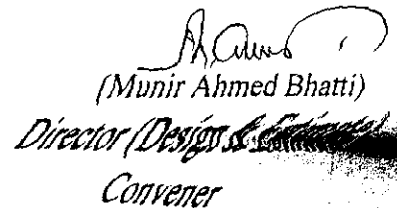 (Munir Ahmed Bhatti)
Director (Design &
Convener